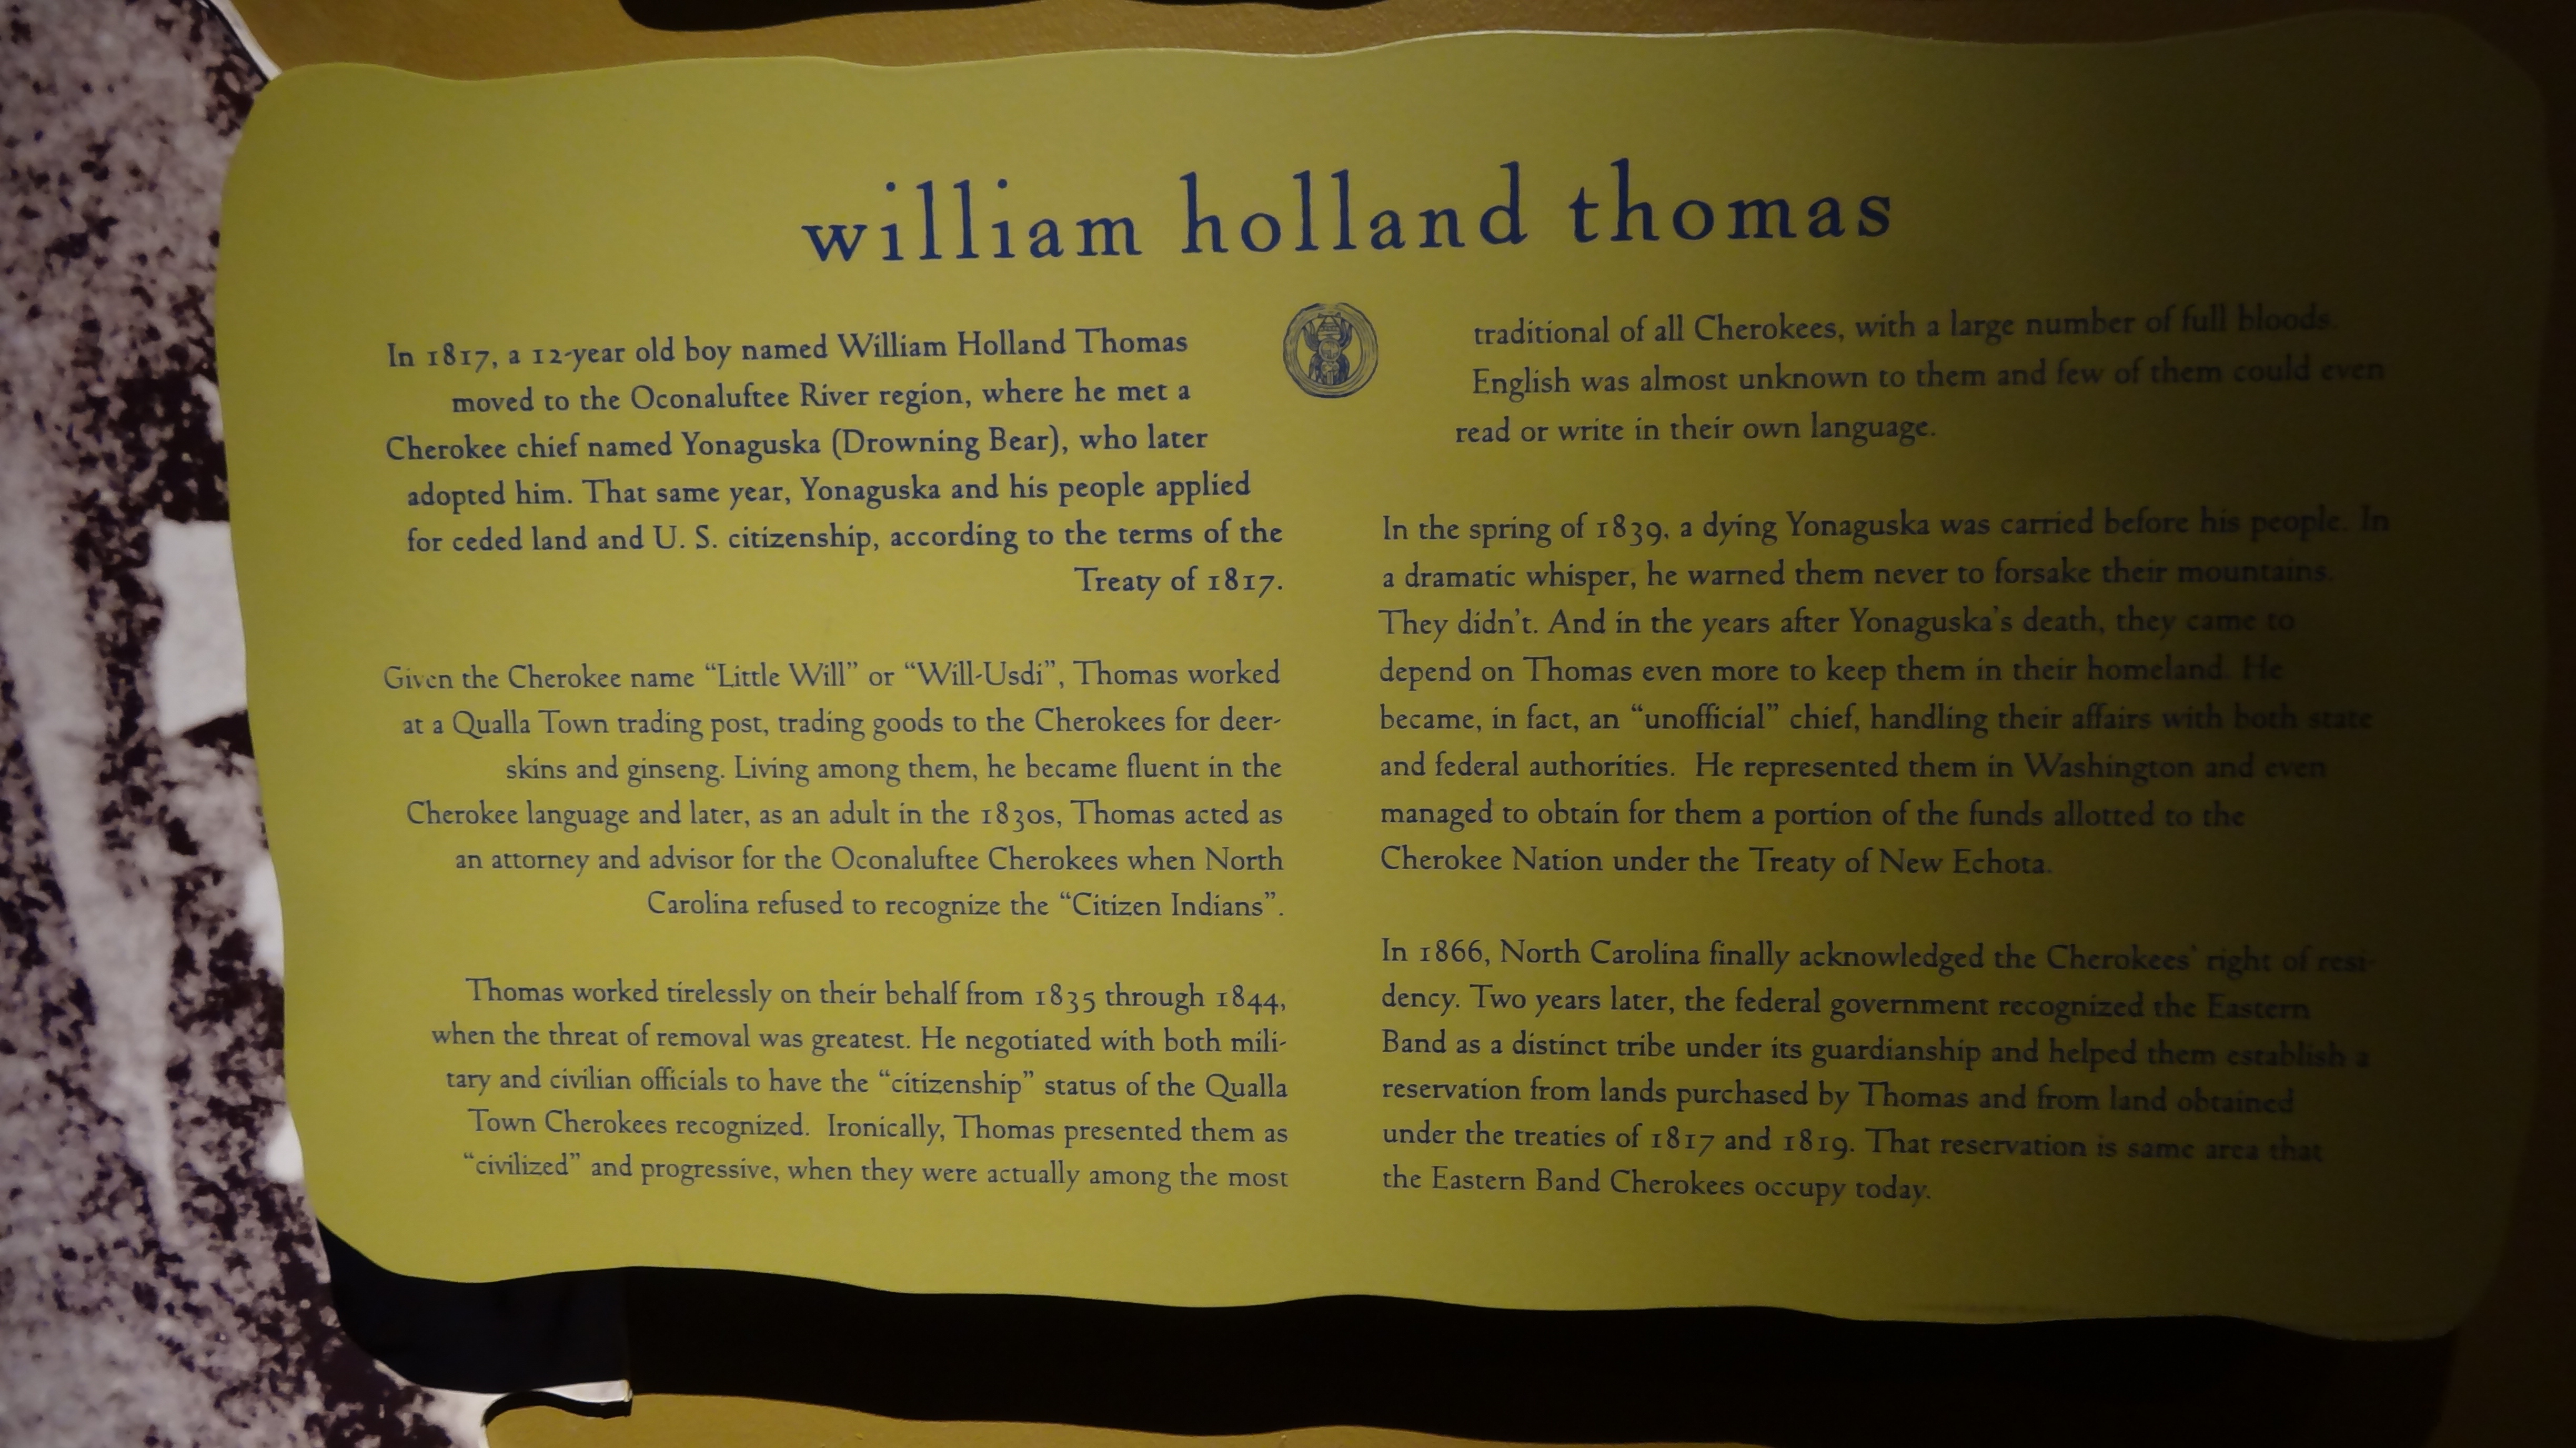 william holland thomas
In 1817, a 12-year old boy named William Holland Thomas
moved to the Oconaluftee River region, where he met a
Cherokee chief named Yonaguska (Drowning Bear), who later
adopted him. That same year, Yonaguska and his people applied
for ceded land and U. S. citizenship, according to the terms of the
Treaty of 1817.
Given the Cherokee name “Little Will” or “Will-Usdi”, Thomas worked
at a Qualla Town trading post, trading goods to the Cherokees for deer-
skins and ginseng. Living among them, he became fluent in the
Cherokee language and later, as an adult in the 1830s, Thomas acted as
an attorney and advisor for the Oconaluftee Cherokees when North
Carolina refused to recognize the “Citizen Indians”.
Thomas worked tirelessly on their behalf from 1835 through 1844,
when the threat of removal was greatest. He negotiated with both mili-
tary and civilian officials to have the “citizenship” status of the Qualla
Town Cherokees recognized. Ironically, Thomas presented them as
“civilized” and progressive, when they were actually among the most
traditional of all Cherokees, with a large number of full bloods.
English was almost unknown to them and few of them could even
read or write in their own language.
In the spring of 1839, a dying Yonaguska was carried before his people. In
a dramatic whisper, he warned them never to forsake their mountains.
They didn't. And in the years after Yonaguska's death, they came to
depend on Thomas even more to keep them in their homeland. He
became, in fact, an “unofficial” chief, handling their affairs with both state
and federal authorities. He represented them in Washington and even
managed to obtain for them a portion of the funds allotted to the
Cherokee Nation under the Treaty of New Echota.
In 1866, North Carolina finally acknowledged the Cherokees' right of resi-
dency. Two years later, the federal government recognized the Eastern
Band as a distinct tribe under its guardianship and helped them establish a
reservation from lands purchased by Thomas and from land obtained
under the treaties of 1817 and 1819. That reservation is same area that
the Eastern Band Cherokees occupy today.